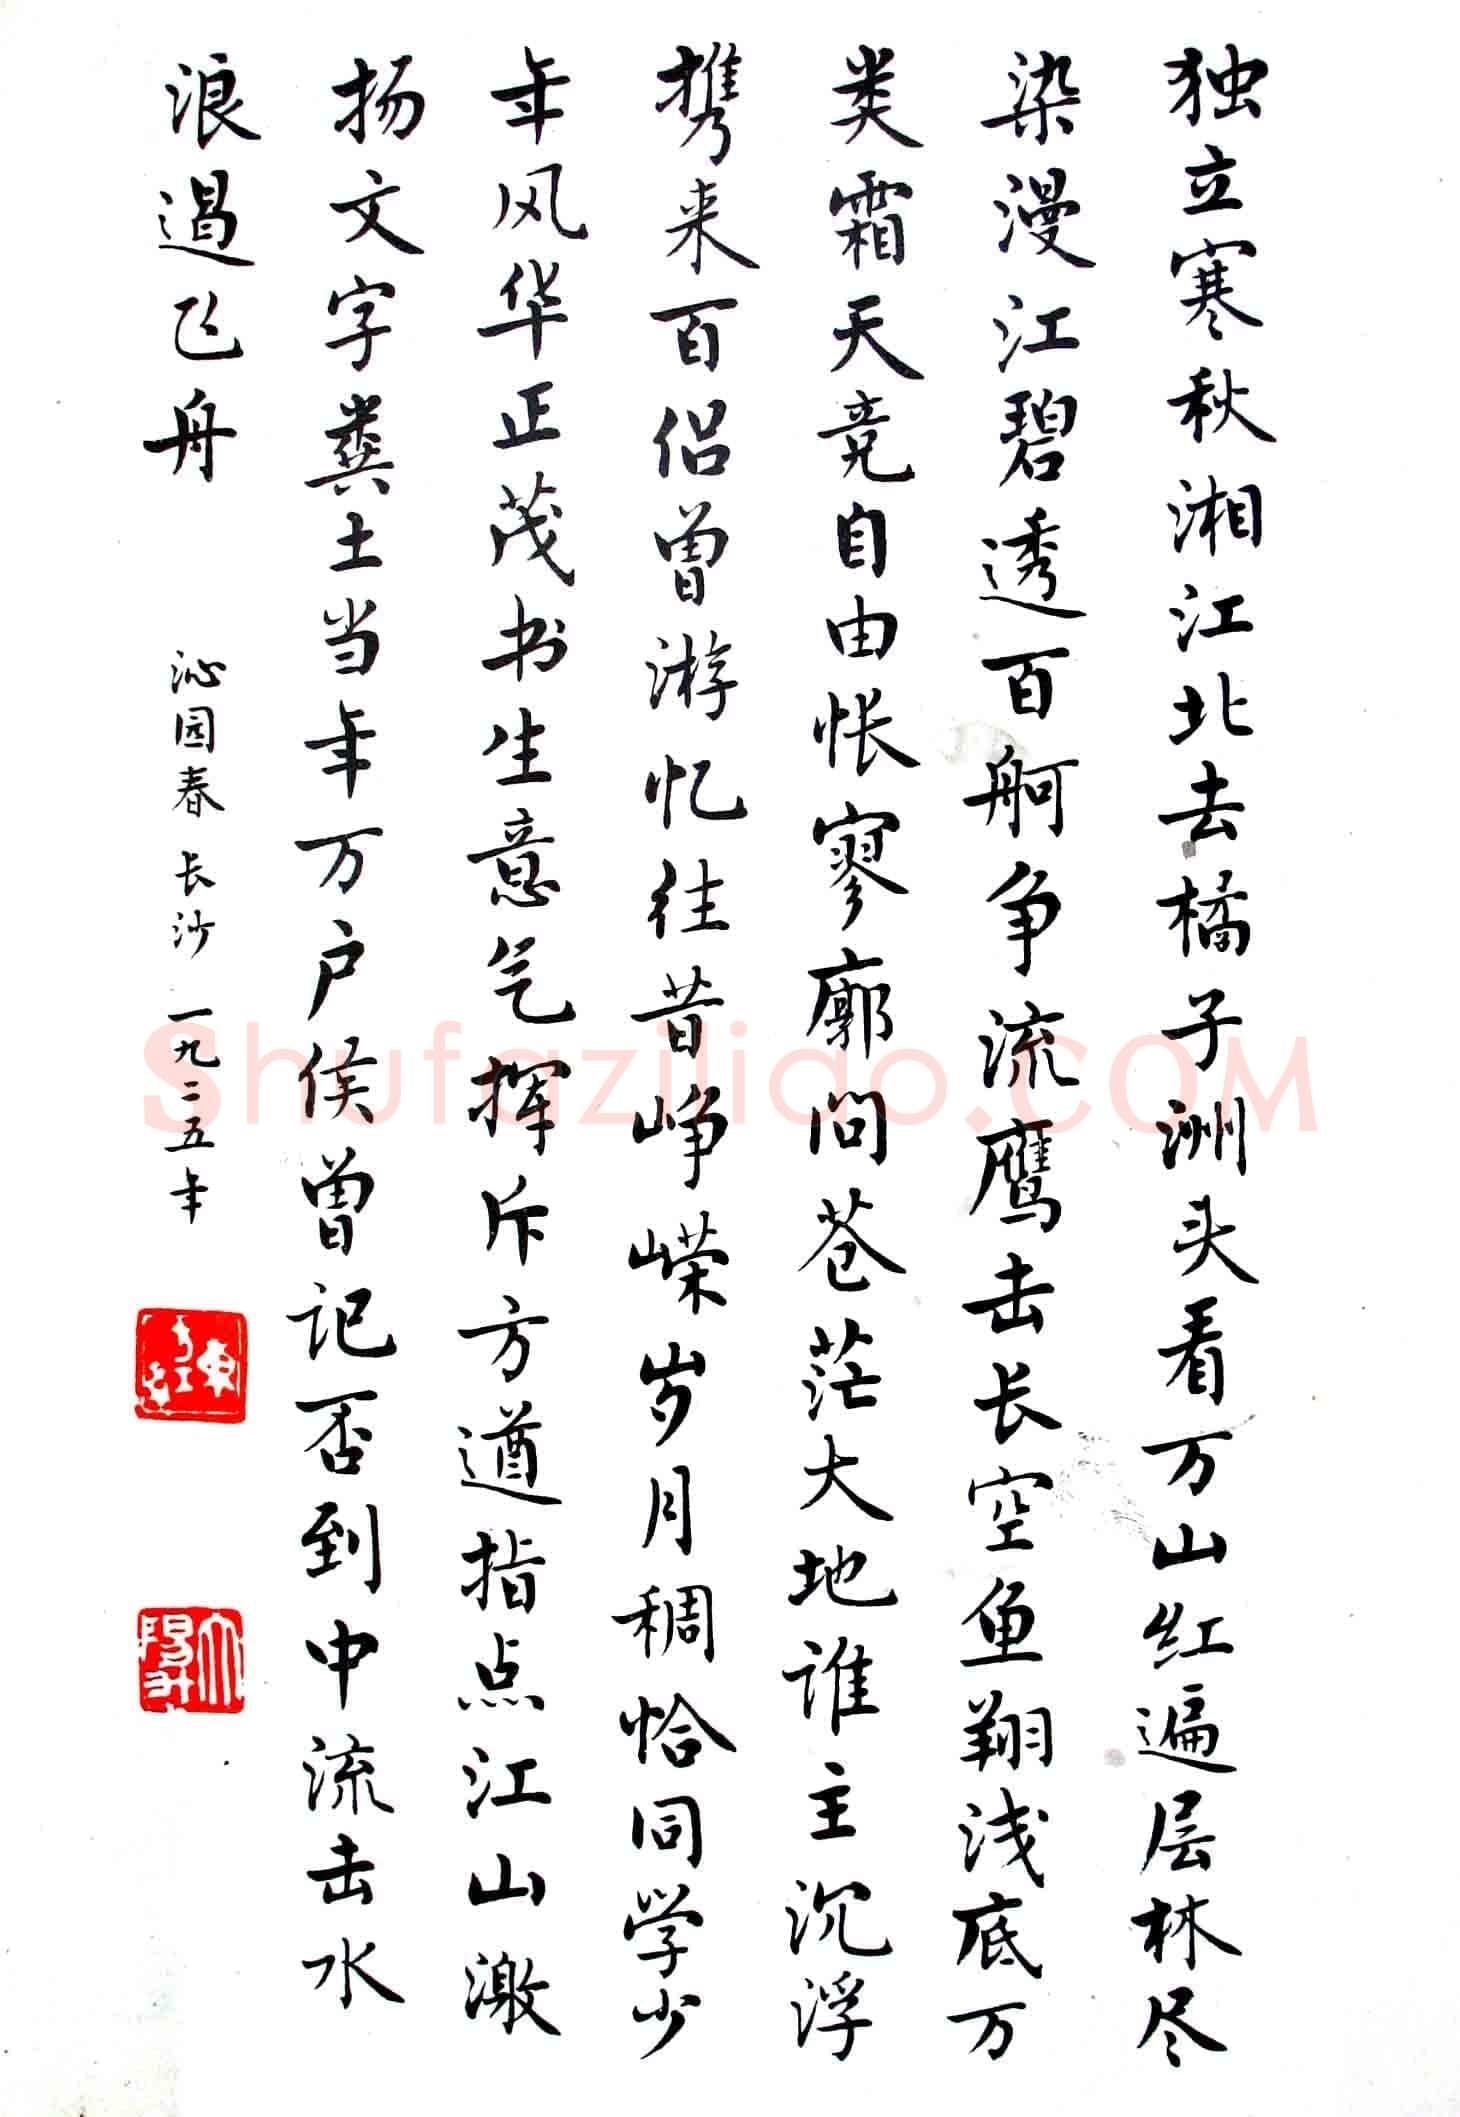 独立寒秋湘江北去橘子洲头看万山红遍层林尽
染漫江碧透百舸争流鹰击长空鱼翔浅底万
类霜天竞自由怅寥廓问苍茫大地谁主沉浮
携来百侣曾游忆往昔峥嵘岁月稠恰同学少
年风华正茂书生意气挥斥方遒指点江山激
扬文字粪土当年万户侯曾记否到中流击水
浪遏飞舟
沁园春 长沙 一九二五年
Shufaziliao.COM